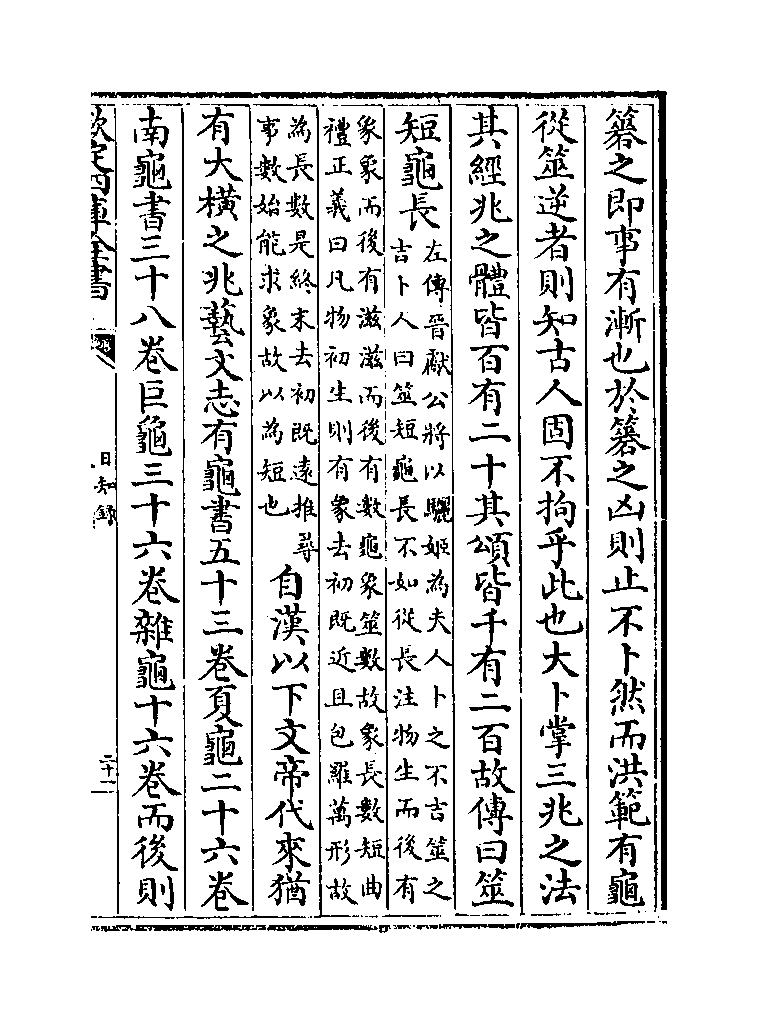 簭之即事有漸也於簭之凶則止不卜然而洪範有龜
從筮逆者則知古人固不拘乎此也大卜掌三兆之法
其經兆之體皆百有二十其頌皆千有二百故傳曰筮
短龜長
左傳晉獻公將以驪姬為夫人卜之不吉筮之
吉卜人曰筮短龜長不如從長注物生而後有
象象而後有滋滋而後有數龜象筮數故象長數短曲
禮正義曰凡物初生則有象去初既近且包羅萬形故
為長數是終末去初既遠推尋
事數始能求象故以為短也
自漢以下文帝代來猶
有大橫之兆藝文志有龜書五十三卷夏龜二十六卷
南龜書二十八卷巨龜三十六卷雜龜十六卷而後則
欽定四庫全書
日知錄
二十一